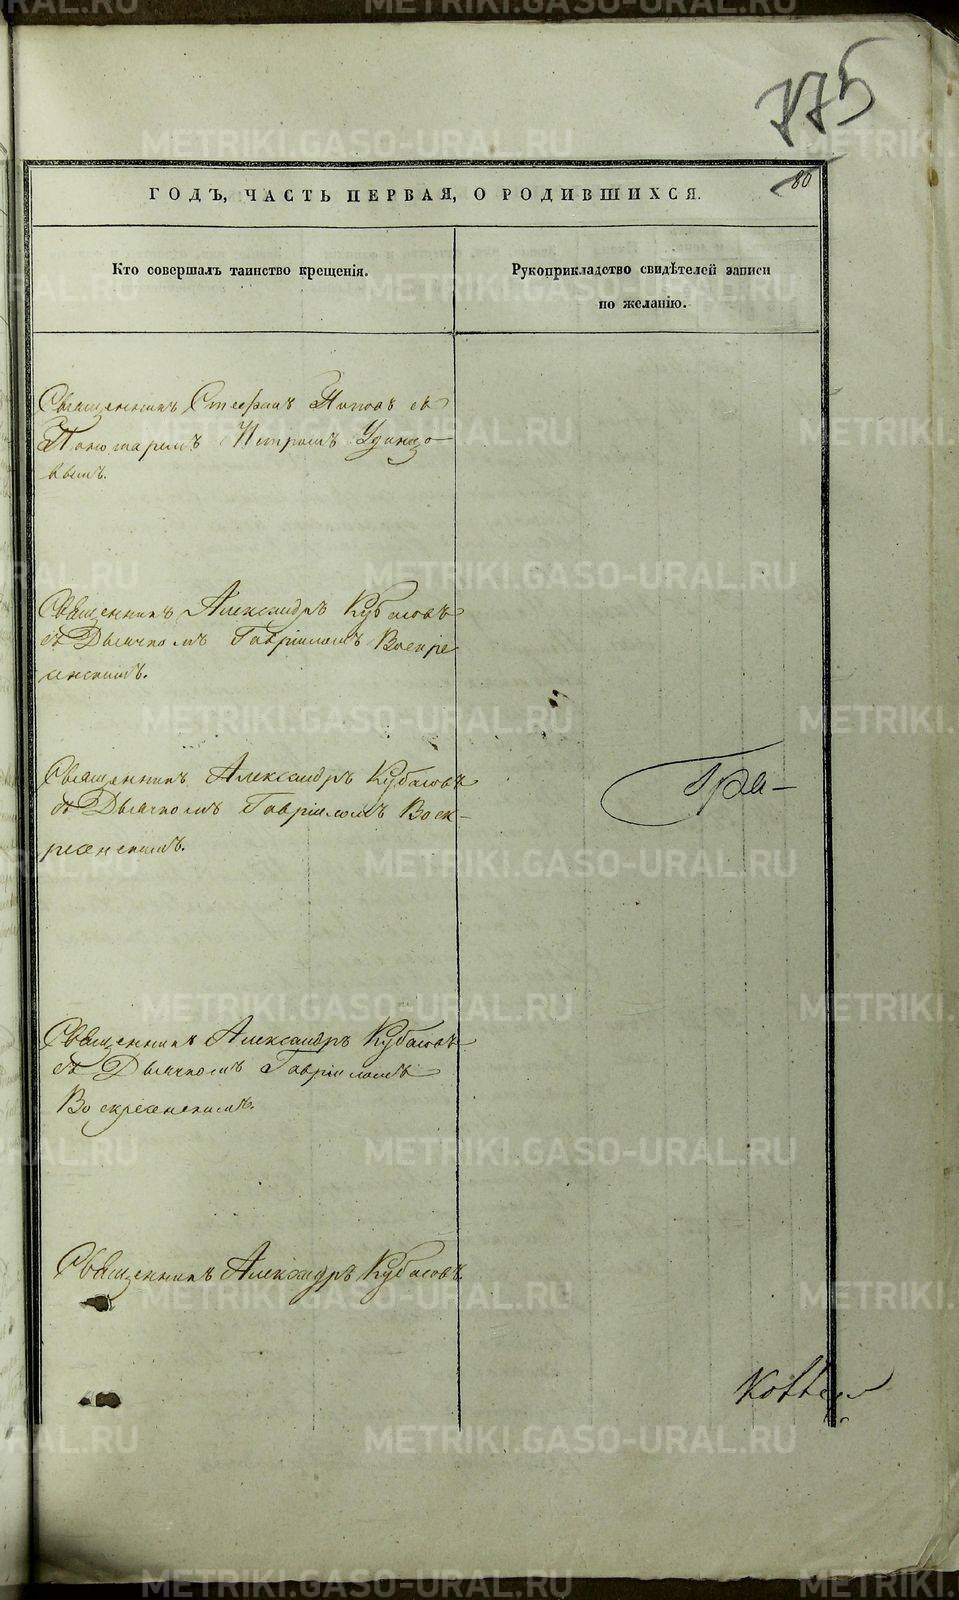 775
80
ГОДЪ, ЧАСТЬ ПЕРВАЯ, О РОДИВШИХСЯ.
Кто совершалъ таинство крещенія.
Рукоприкладство свидѣтелей записи
по желанію.
Священникъ Стефанъ Поповъ съ
Пономаремъ Петромъ Удинцо-
вымъ.
Священникъ Александръ Кубасовъ
съ Дьячкомъ Гавріиломъ Воскре
сенскимъ.
Священникъ Александръ Кубасовъ
съ Дьячкомъ Гавріиломъ Воск-
ресенскимъ.
Гра-
Священникъ Александръ Кубасовъ
съ Дьячкомъ Гавріиломъ
Воскресенскимъ.
Священникъ Александръ Кубасовъ.
METRIKI.GASO-URAL.RU